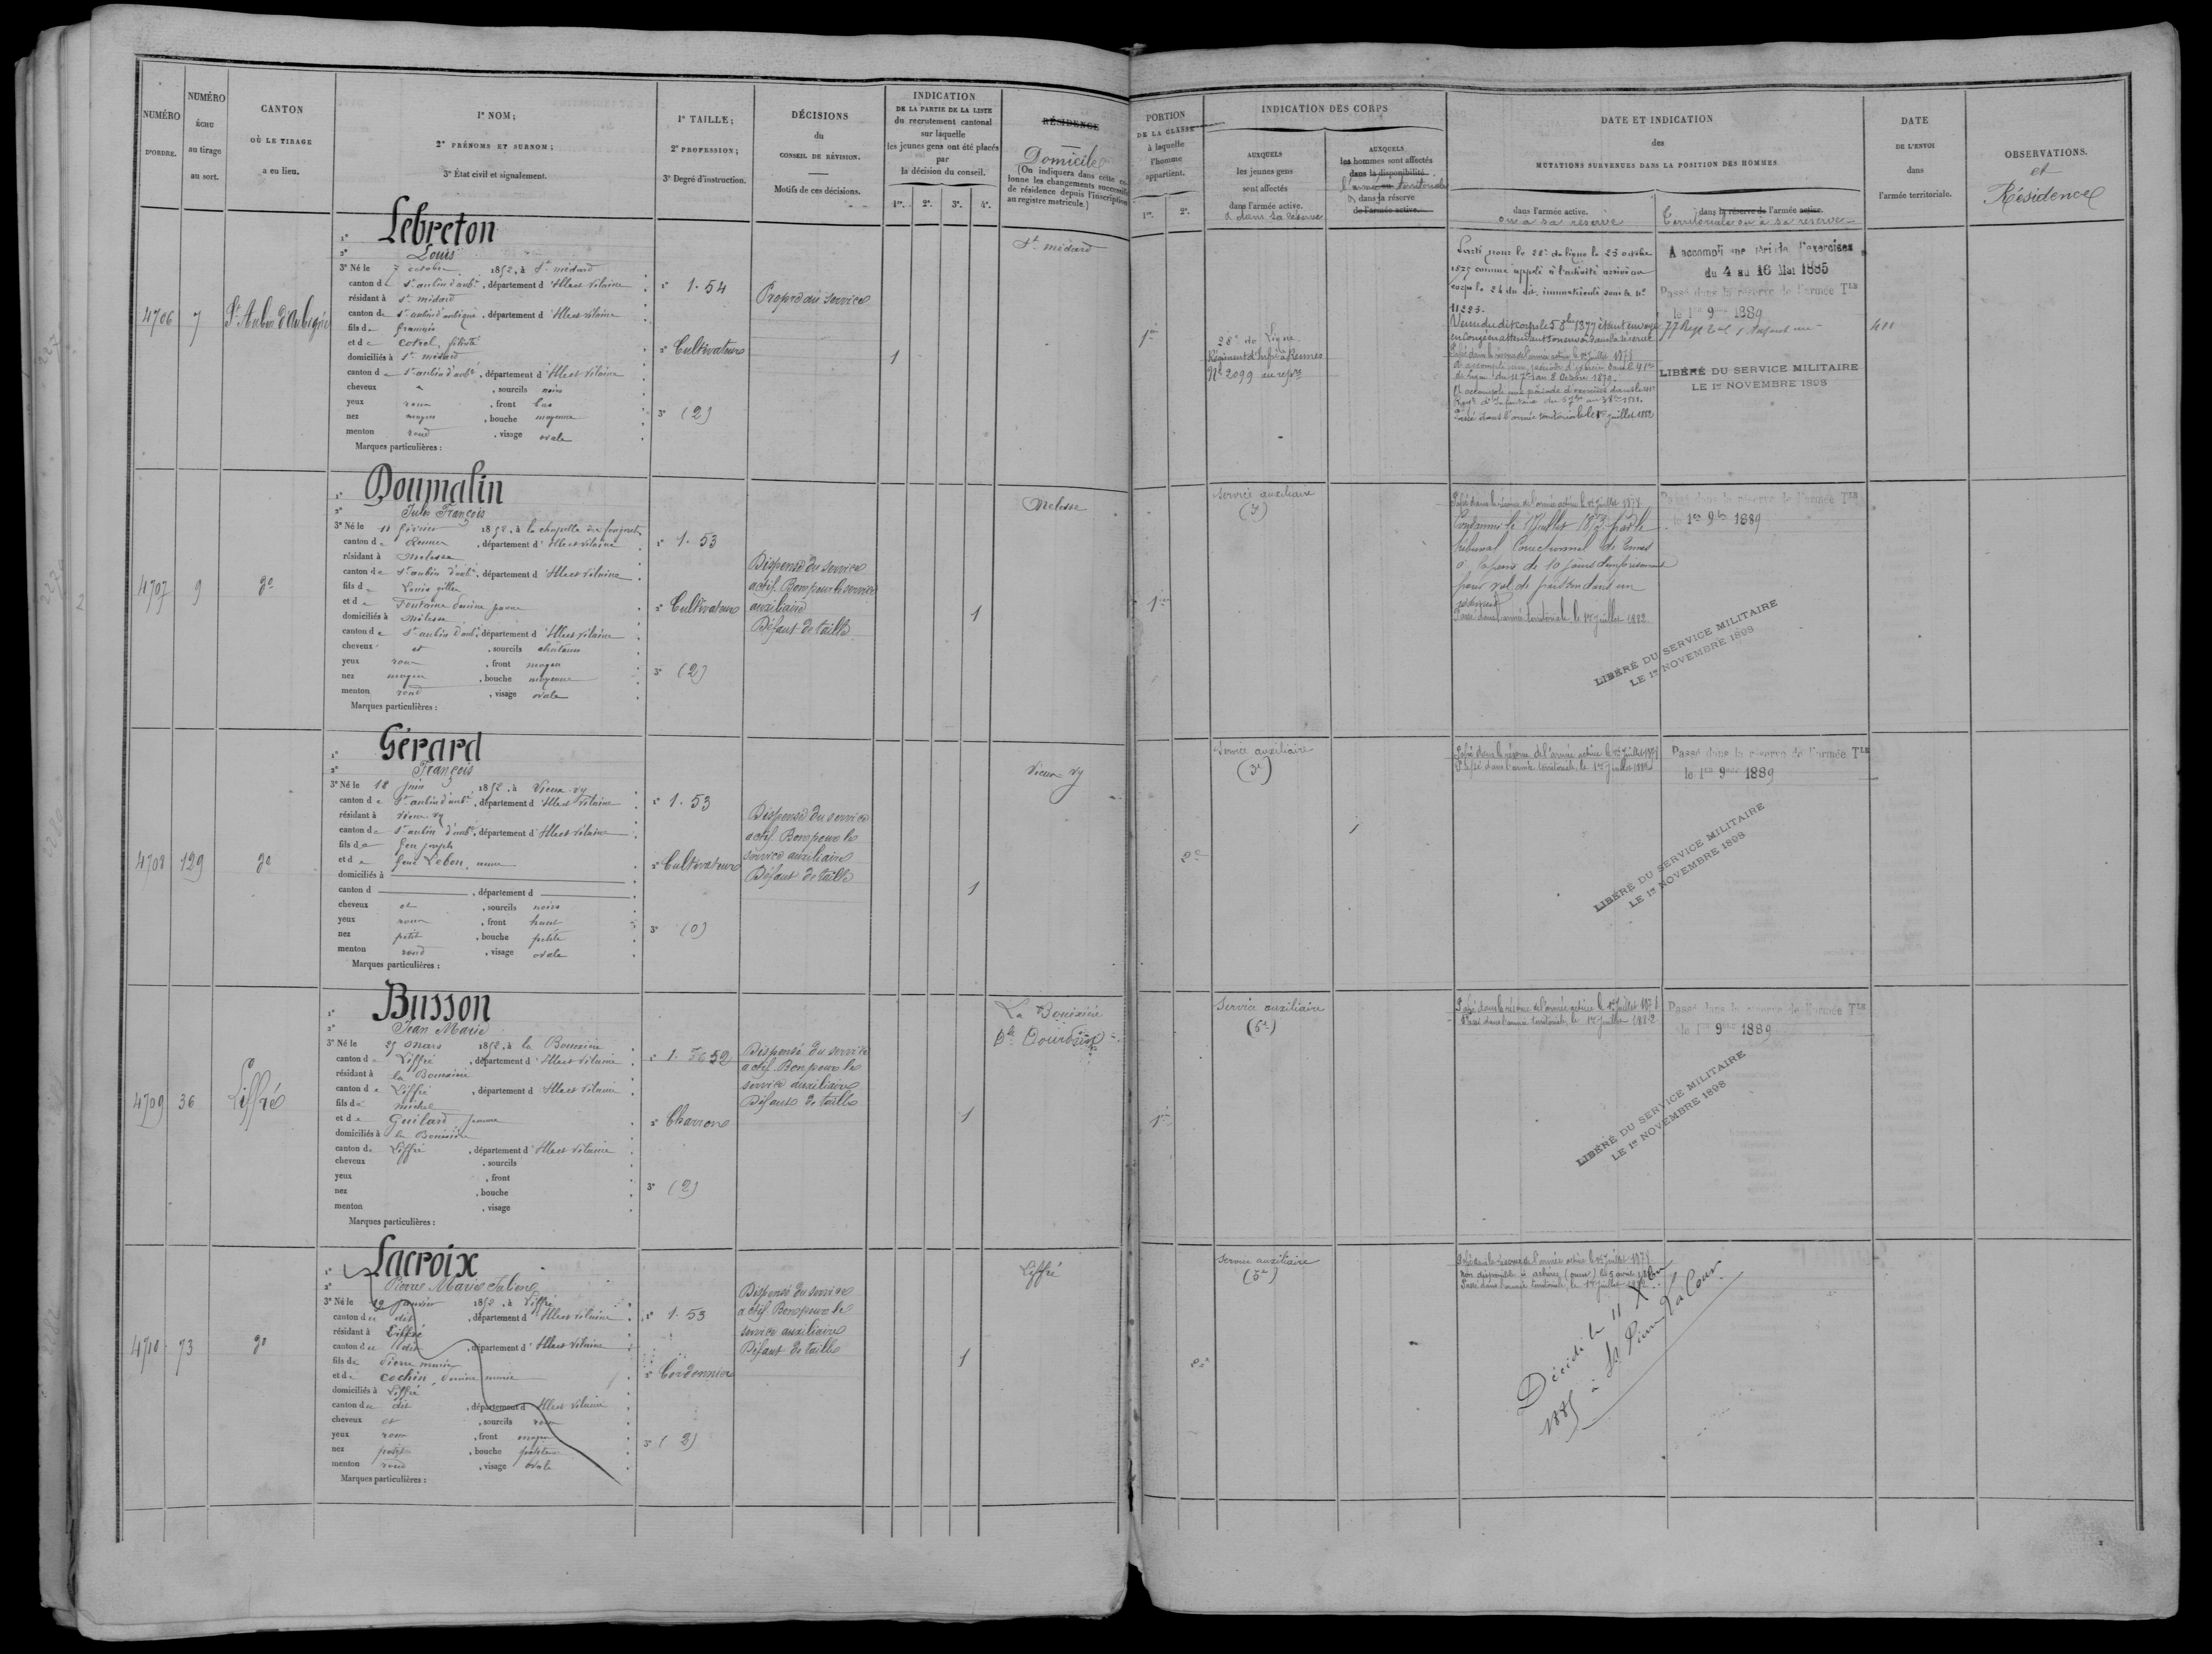 NUMÉRO
D'ORDRE.
NUMÉRO
ÉCHU
au tirage
au sort.
CANTON
OÙ LE TIRAGE
a eu lieu.
1° NOM;
2° PRÉNOMS ET SURNOM;
3° État civil et signalement.
1° TAILLE;
2° PROFESSION;
3° Degré d'instruction.
DÉCISIONS
du
CONSEIL DE RÉVISION.
Motifs de ces décisions.
INDICATION
DE LA PARTIE DE LA LISTE
du recrutement cantonal
sur laquelle
les jeunes gens ont été placés
par
la décision du conseil.
1re. 2e. 3e. 4e.
RÉSIDENCE
Domicile
(On indiquera dans cette co-
lonne les changements successifs
de résidence depuis l'inscription
au registre matricule.)
PORTION
DE LA CLASSE
à laquelle
l'homme
appartient.
1re. 2e.
INDICATION DES CORPS
AUXQUELS
les jeunes gens
sont affectés
dans l'armée active.
& dans sa réserve
AUXQUELS
les hommes sont affectés
dans la disponibilité.
l'armée territoriale
& dans la réserve
de l'armée active.
DATE ET INDICATION
des
MUTATIONS SURVENUES DANS LA POSITION DES HOMMES
dans l'armée active.
ou à sa réserve
dans la réserve de l'armée active.
Territoriale ou à sa réserve
DATE
DE L'ENVOI
dans
l'armée territoriale.
OBSERVATIONS.
et
Résidence
4706
7
St Aubin d'Aubigné
1° Lebreton
2° Louis
3° Né le 7 octobre 1852, à St médard
canton de St aubin d'aubé, département d'Ille et Vilaine
résidant à St médard
canton de St aubin d'aubigné, département d'Ille et Vilaine
fils de François
et de Cotrel,
domiciliés à St médard
canton de St aubin d'aubé, département d'Ille et Vilaine
cheveux , sourcils noirs
yeux roux , front bas
nez moyen , bouche moyenne
menton rond , visage ovale
Marques particulières :
1° 1.54
2° Cultivateur
3° (2)
Propre au service
1
St médard
1re
28e de Ligne
Régiment d'Infrie à Rennes
No 2099 au repre
Parti pour le 28e de ligne le 23 octobre
1875 comme appelé à l'activité arrivé au
corps le 24 du dit, immatriculé sous le no
11285.
Venu du dit corps le 5 8bre 1877 étant envoyé
en congé en attendant son envoi dans la réserve
Passé dans la réserve de l'armée active le 1er Juillet 1878
A accompli une période d'exercices dans le 41e
de ligne du 11 7bre au 8 Octobre 1879.
A accompli une période d'exercices dans le 41e
Passé dans l'armée territoriale le 1er juillet 1882
A accompli une période d'exercices
du 4 au 16 Mai 1885
Passé dans la réserve de l'armée Tle
le 1er 9bre 1889
LIBÉRÉ DU SERVICE MILITAIRE
LE 1er NOVEMBRE 1898
4707
9
do
1° Doumalin
2° Jules François
3° Né le 11 février 1852, à la chapelle des fougeretz
canton de Rennes , département d'Ille et Vilaine
résidant à Melesse
canton de St aubin d'aubé, département d'Ille et Vilaine
fils de Louis gilles
et de Fontaine
domiciliés à Melesse
canton de St aubin d'aubé, département d'Ille et Vilaine
cheveux et , sourcils chatains
yeux roux , front moyen
nez moyen , bouche moyenne
menton rond , visage ovale
Marques particulières :
1° 1.53
2° Cultivateur
3° (2)
Dispensé du service
actif. Bon pour le service
auxiliaire
Défaut de taille
1
Melesse
1re
Service auxiliaire
Passé dans la réserve de l'armée active le 1er Juillet 1878
Condamné le Juillet 1873 par le
tribunal Correctionnel de Rennes
à la peine de 10 jours d'emprisonnement
pour vol de
Passé dans l'armée territoriale le 1er juillet 1882
Passé dans la réserve de l'armée Tle
le 1er 9bre 1889
LIBÉRÉ DU SERVICE MILITAIRE
LE 1er NOVEMBRE 1898
4708
129
do
1° Gérard
2° François
3° Né le 18 juin 1852, à Vieux-vy
canton de St aubin d'aubé, département d'Ille et Vilaine
résidant à Vieux-vy
canton de St aubin d'aubé, département d'Ille et Vilaine
fils de feu joseph
et de feue Lebon, anne
domiciliés à
canton d , département d
cheveux et , sourcils noirs
yeux roux , front haut
nez petit , bouche petite
menton rond , visage ovale
Marques particulières :
1° 1.53
2° Cultivateur
3° (0)
Dispensé du service
actif. Bon pour le
service auxiliaire
Défaut de taille
1
Vieux-vy
2e
Service auxiliaire
(3e)
Passé dans la réserve de l'armée active le 1er Juillet 1878
Passé dans l'armée territoriale, le 1er Juillet 1882
Passé dans la réserve de l'armée Tle
le 1er 9bre 1889
LIBÉRÉ DU SERVICE MILITAIRE
LE 1er NOVEMBRE 1898
4709
36
Liffré
1° Busson
2° Jean Marie
3° Né le 25 mars 1852, à la Bouexière
canton de Liffré , département d'Ille et Vilaine
résidant à la Bouexière
canton de Liffré , département d'Ille et Vilaine
fils de michel
et de Guilard
domiciliés à la Bouexière
canton de Liffré , département d'Ille et Vilaine
cheveux , sourcils
yeux , front
nez , bouche
menton , visage
Marques particulières :
1° 1. 52
2° Charron
3° (2)
Dispensé du service
actif. Bon pour le
service auxiliaire
Défaut de taille
1
La Bouexière
1re
Service auxiliaire
(5e)
Passé dans la réserve de l'armée active le 1er Juillet 1878
Passé dans l'armée territoriale, le 1er Juillet 1882
Passé dans la réserve de l'armée Tle
le 1er 9bre 1889
LIBÉRÉ DU SERVICE MILITAIRE
LE 1er NOVEMBRE 1898
4710
73
do
1° Lacroix
2° Pierre Marie Julien
3° Né le 12 janvier 1852, à Liffré
canton du dit , département d'Ille et Vilaine
résidant à Liffré
canton du dit , département d'Ille et Vilaine
fils de Pierre marie
et de Cochin,
domiciliés à Liffré
canton du dit , département d'Ille et Vilaine
cheveux et , sourcils roux
yeux roux , front moyen
nez petit , bouche
menton rond , visage ovale
Marques particulières :
1° 1.53
2° Cordonnier
3° (2)
Dispensé du service
actif. Bon pour le
service auxiliaire
Défaut de taille
1
Liffré
2e
Service auxiliaire
(5e)
Passé dans la réserve de l'armée active le 1er Juillet 1878
Non disponible
Passé dans l'armée territoriale, le 1er Juillet 1882
Décédé le 11 Xbre
1885 à St Pierre La Cour